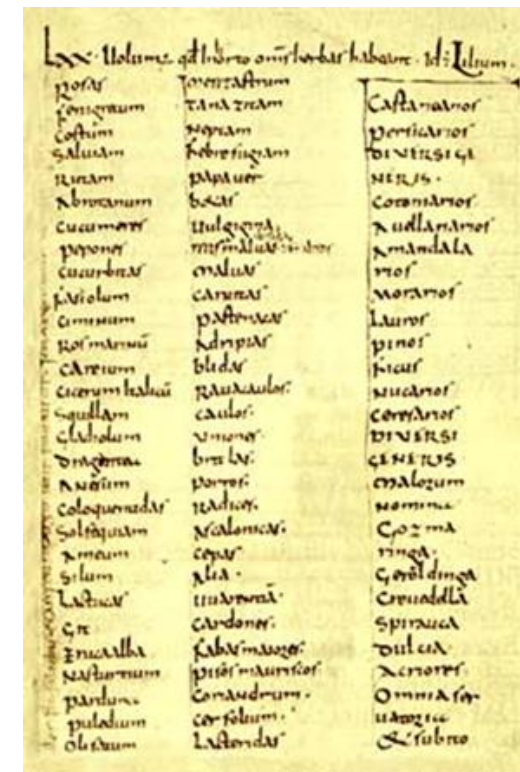 Lxx. Uolumus qd inhorto omnes herbas habeant. Id: Lilium.
Rosas
Fenigrecum
Costum
Saluiam
Rutam
Abrotanum
Cucumeres
pepones
Cucurbitas
Fasiolum
Ciminum
Ros marinū
Careium
Cicerum Italicū
Squillam
Gladiolum
Dragantea
Anesum
Coloquentidas
Solsequiam
Ameum
Silum
Lactucas
Git
Erucaalba
Nasturtium
parduna
puledium
Olisatum
mentastrum
Tanazitam
Neptam
Febrefugiam
papauer
betas
Uulgigina
malmalvas
Maluas
Caruitas
pastenacas
Adripias
blidas
Rauacaulos.
Caulos.
Uniones.
britlas.
porros.
Radices.
Ascalonicas.
Cepas.
Alia.
Uuarentiā.
Cardones.
Fabas maiores.
pisos mauriscos
Coriandrum.
Cerfolium.
Lacteridas
Castanearios
persicarios
DIVERSI GE
NERIS.
Cotoniarios
Auellanarios
Amandala
rios
Morarios
Lauros
pinos
Ficus
Nucarios
Ceresarios
DIVERSI
GENERIS.
Malorum
Nomina
Gozma
ringa.
Geroldinga
Creuedella
Spirauca
Dulcia
Acriores
Omnia ser
uatoria
& subito